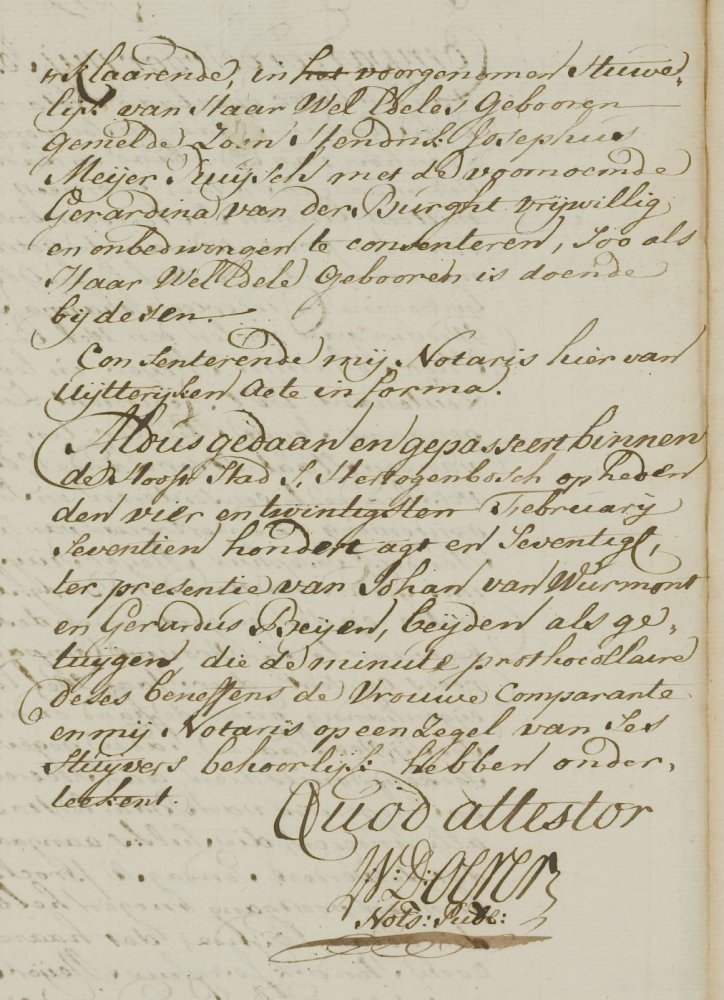 klaarende, in het voorgenomen Huwe-
lijk van Haar Wel Edeles Gebooren
gemelde Zoon Hendrik Josephus
Meijer Kuijsch met de voornoemde
Gerardina van der Burght vrijwillig
en onbedwongen te consenteren, Soo als
Haar Wel Edele Gebooren is doende
bij desen.
Consenterende mij Notaris hier van
Uijtterijken Acte in forma.
Aldus gedaan en gepasseert binnen
de Hooft Stad S. Hertogenbosch op heden
den vier en twintigsten Februarij
Seventien hondert agt en Seventigh,
ter presentie van Johan van Wurmont
en Gerardus Beijen, beijden als ge-
tuijgen, die de minute prothocollaire
deses beneffens de Vrouwe Comparante
en mij Notaris op een Zegel van Ses
Stuijvers behoorlijk hebben onder-
teekent.
Quod attestor
W: Doerer
Nots: Publ: